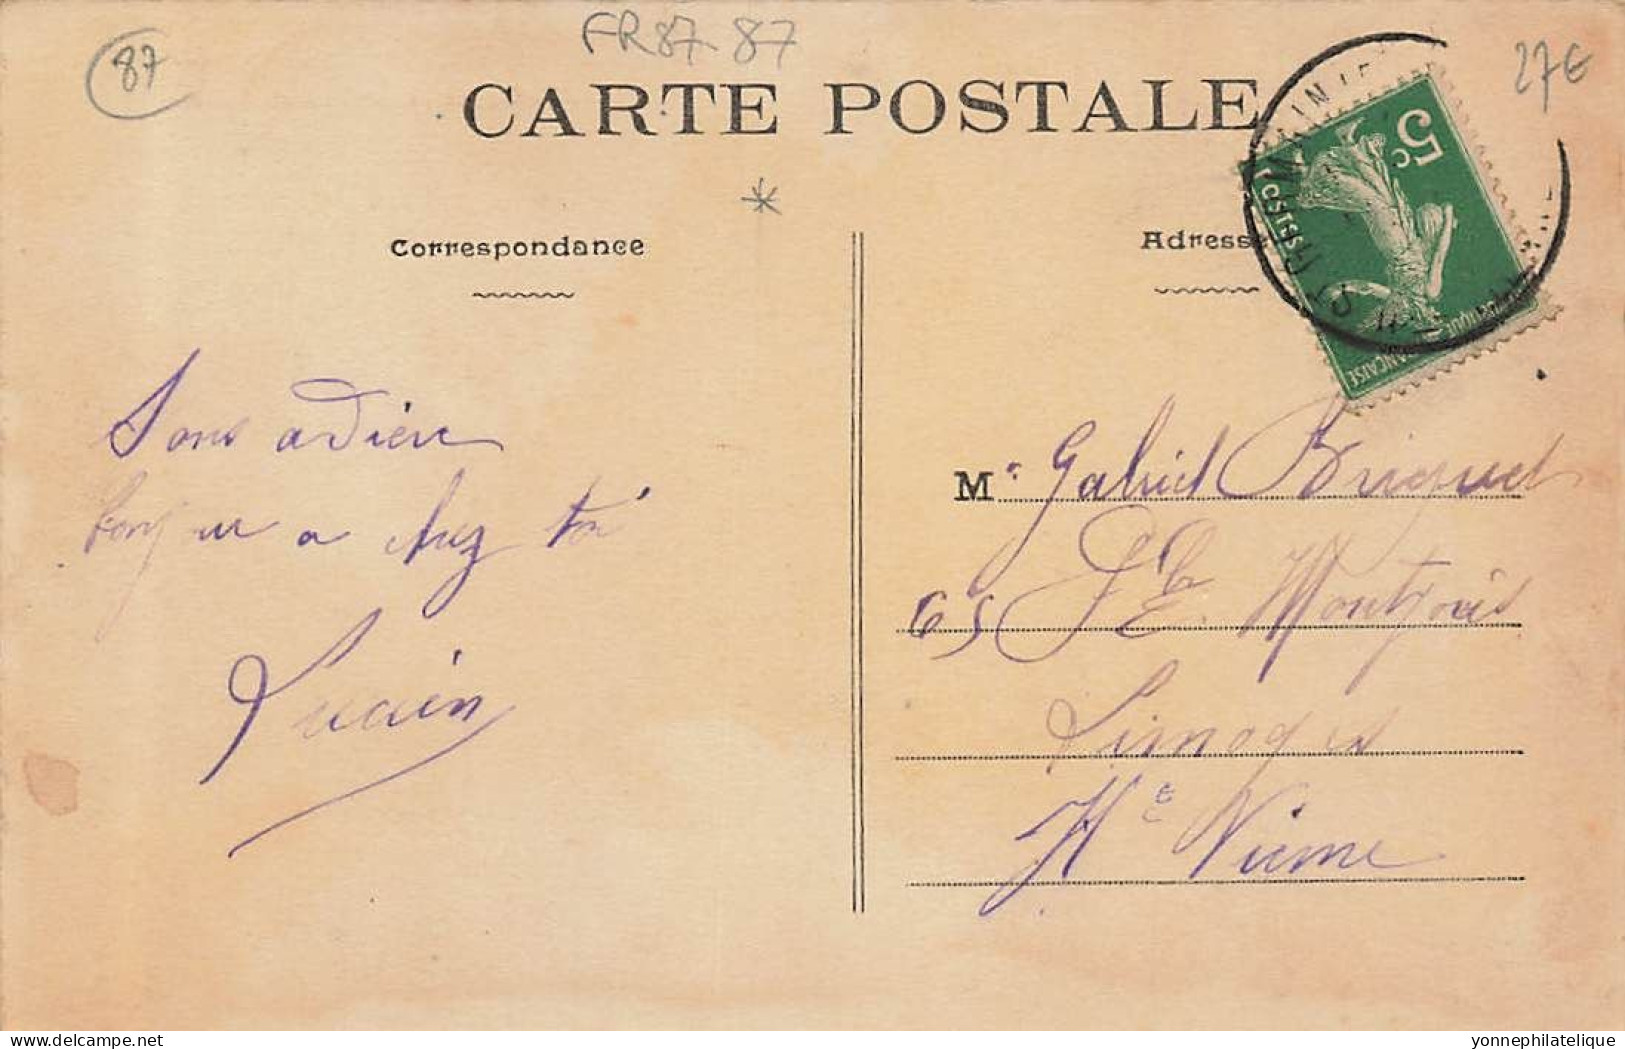 87
FR87 87
27€
CARTE POSTALE
*
Correspondance
Adresse
5c
POSTES
Sans adieu
bonjour a chez toi
Lucien
Mr. Gabriel Briquet
65 Montjovis
Limoges
Hte Vienne
delcampe.net
yonnephilatelique